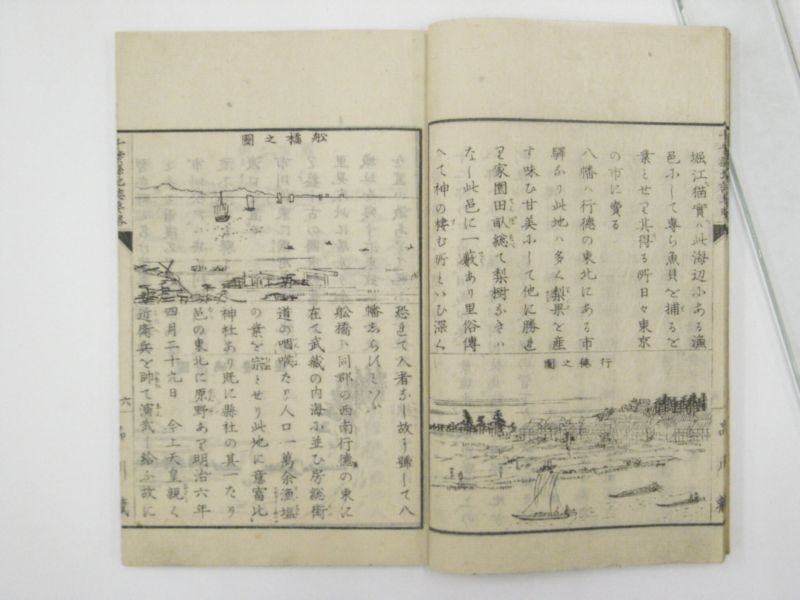 堀江猫實ハ此海辺ふある漁
邑ふして專ら魚貝を捕るを
業とせり其得る所日々東京
の市に賣る
八幡ハ行德の東北にある市
驛なり此地ハ多く梨果を産
す味ひ甘美ふして他に勝ま
り家園田畝総て梨樹なきハ
なし此邑に一薮あり里俗傳
へて神の棲む所といひ深く
行德之圖
舩橋之圖
恐まて入者なし故に號して八
幡志らにといふ
舩橋ハ同郡の西南行德の東に
在て武藏の内海に並ひ房総街
道の咽喉たり人口一萬余漁塩
の業を宗とせり此地に意冨比
神社あり既に縣社の其一たり
邑の東北に原野あり明治六年
四月二十九日 今上天皇親く
近衛兵を帥て演武し給ふ故に
六